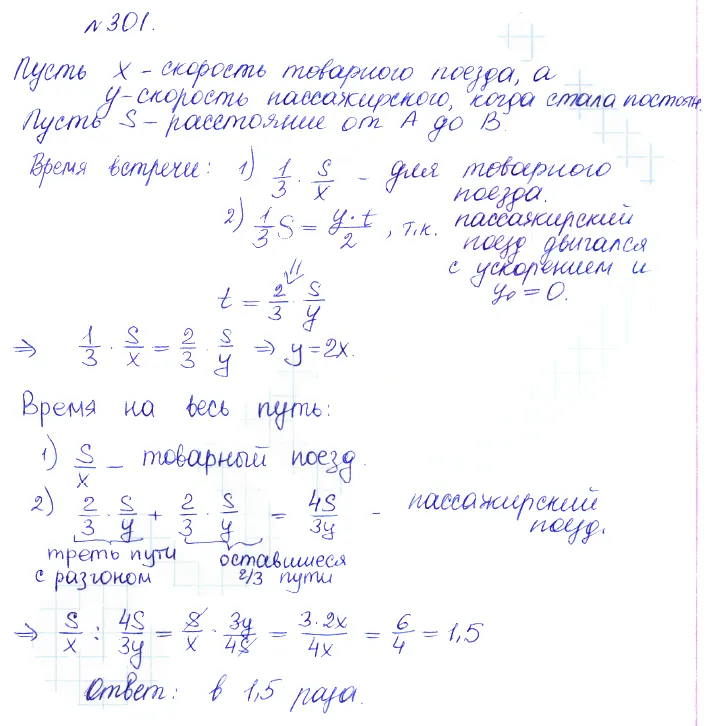 №301.
Пусть x – скорость товарного поезда, а
y – скорость пассажирского, когда стала постоян
Пусть S – расстояние от A до B.
Время встречи: 1) 1/3 · S/x – для товарного поезда.
2) 1/3 S = y·t/2, т.к. пассажирский поезд двигался с ускорением и y₀ = 0.
⇓
t = 2/3 · S/y
⇒ 1/3 · S/x = 2/3 · S/y ⇒ y = 2x.
Время на весь путь:
1) S/x – товарный поезд.
2) 2/3 · S/y + 2/3 · S/y = 4S/3y – пассажирский поезд.
треть пути с разгоном
оставшиеся 2/3 пути
⇒ S/x : 4S/3y = S/x · 3y/4S = 3·2x/4x = 6/4 = 1,5
Ответ: в 1,5 раза.